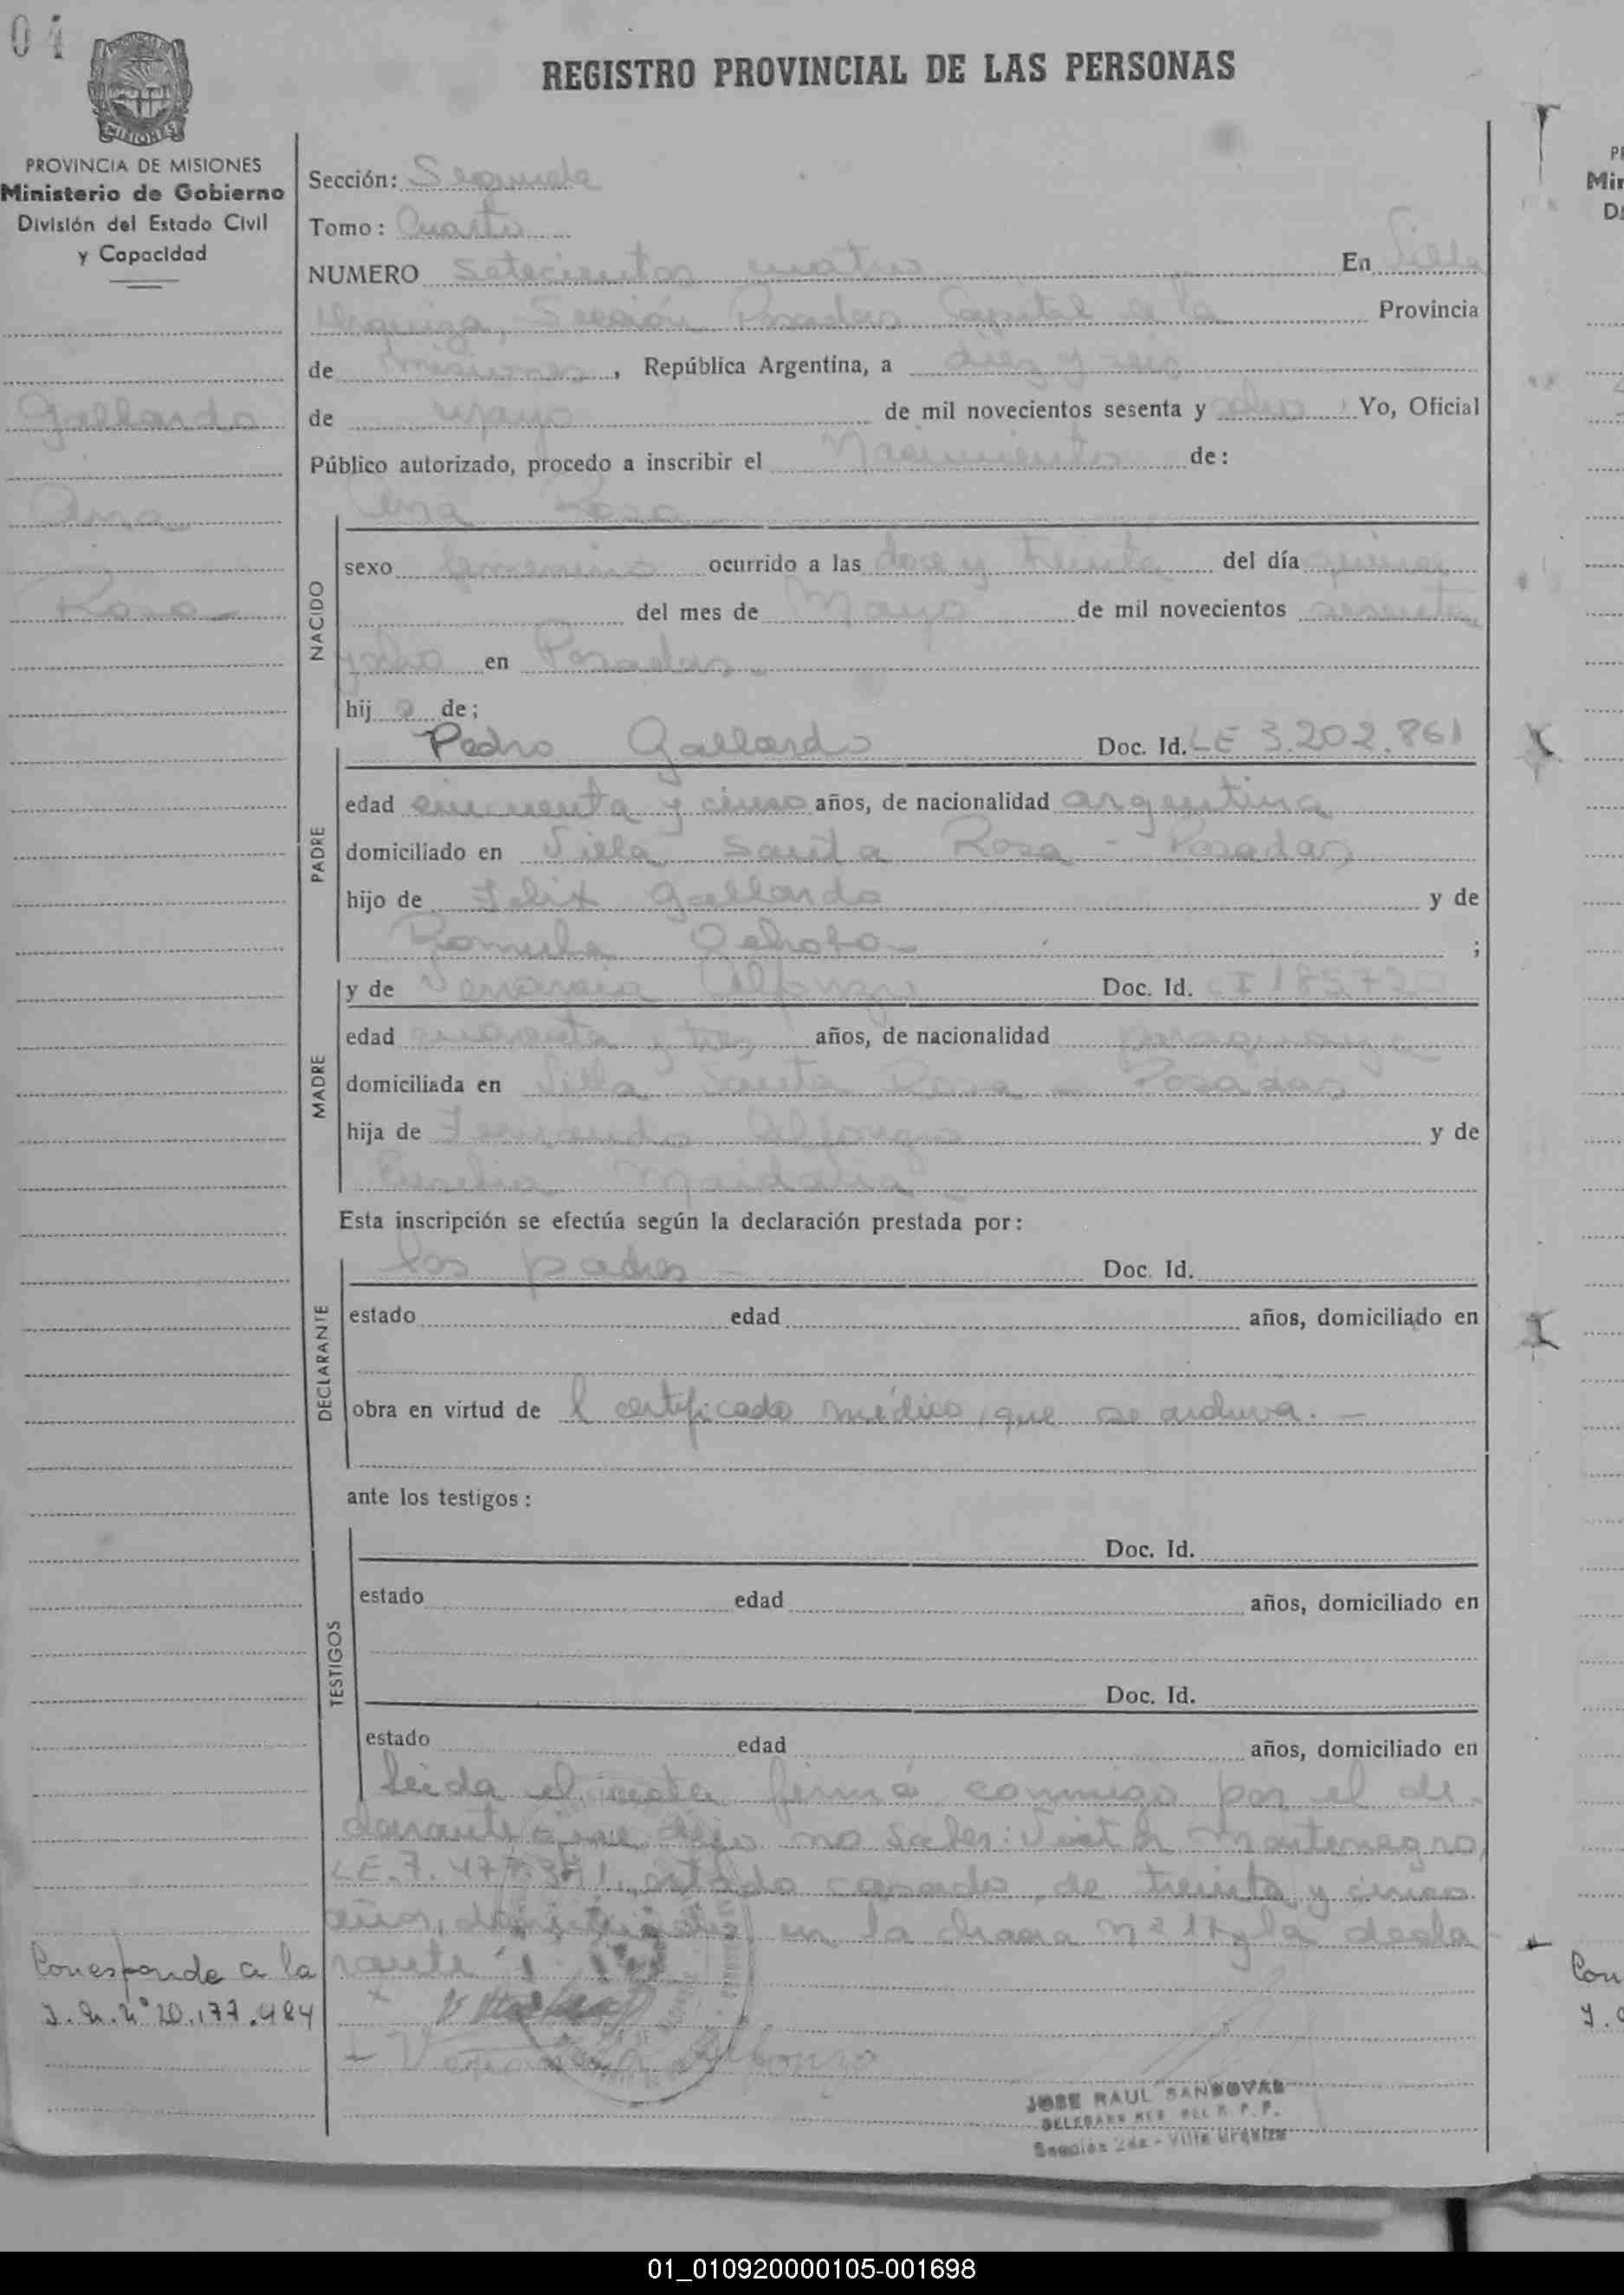 04
REGISTRO PROVINCIAL DE LAS PERSONAS
MISIONES
PROVINCIA DE MISIONES
Ministerio de Gobierno
División del Estado Civil
y Capacidad
Gallardo
Ana
Rosa
Sección: Segunda
Tomo: Cuarto
NUMERO setecientos cuatro En Villa
Urquiza, Sección Posadas Capital de la Provincia
de Misiones, República Argentina, a diez y seis
de mayo de mil novecientos sesenta y ocho. Yo, Oficial
Público autorizado, procedo a inscribir el Nacimiento de:
Ana Rosa
NACIDO
sexo femenino ocurrido a las doce y treinta del día quince
del mes de Mayo de mil novecientos sesenta
y ocho en Posadas
hij a de;
PADRE
Pedro Gallardo Doc. Id. LE 3.202.861
edad cincuenta y cinco años, de nacionalidad argentina
domiciliado en Villa Santa Rosa - Posadas
hijo de Felix Gallardo y de
Romula ;
MADRE
y de Venancia Alfonzo Doc. Id. CI
edad cuarenta y tres años, de nacionalidad paraguaya
domiciliada en Villa Santa Rosa - Posadas
hija de Fernando Alfonzo y de
Esta inscripción se efectúa según la declaración prestada por:
DECLARANTE
los padres - Doc. Id.
estado edad años, domiciliado en
obra en virtud de l certificado médico, que se archiva. -
ante los testigos:
TESTIGOS
Doc. Id.
estado edad años, domiciliado en
Doc. Id.
estado edad años, domiciliado en
Leida el acta, firma conmigo por el de-
clarante que dijo no saber: Montenegro,
LE. 7. estado casado, de treinta y cinco
años, domiciliado en la chacra Nº 117 y la decla
rante
Corresponde a la
I. N. Nº 20.177.484
Alfonzo
JOSE RAUL SANDOVAL
Sección 2da - Villa Urquiza
01_010920000105-001698